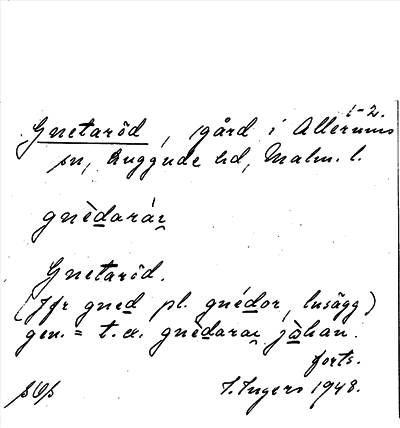 1-2.
Gnetaröd, gård i Allerums
sn, Luggude hd, Malm. l.
gnèdarár
Gnetaröd.
(Jfr gned pl. gnédor, lusägg)
gen. = t. ex. gnèdarar jòhan.
forts.
I. Ingers 1948.